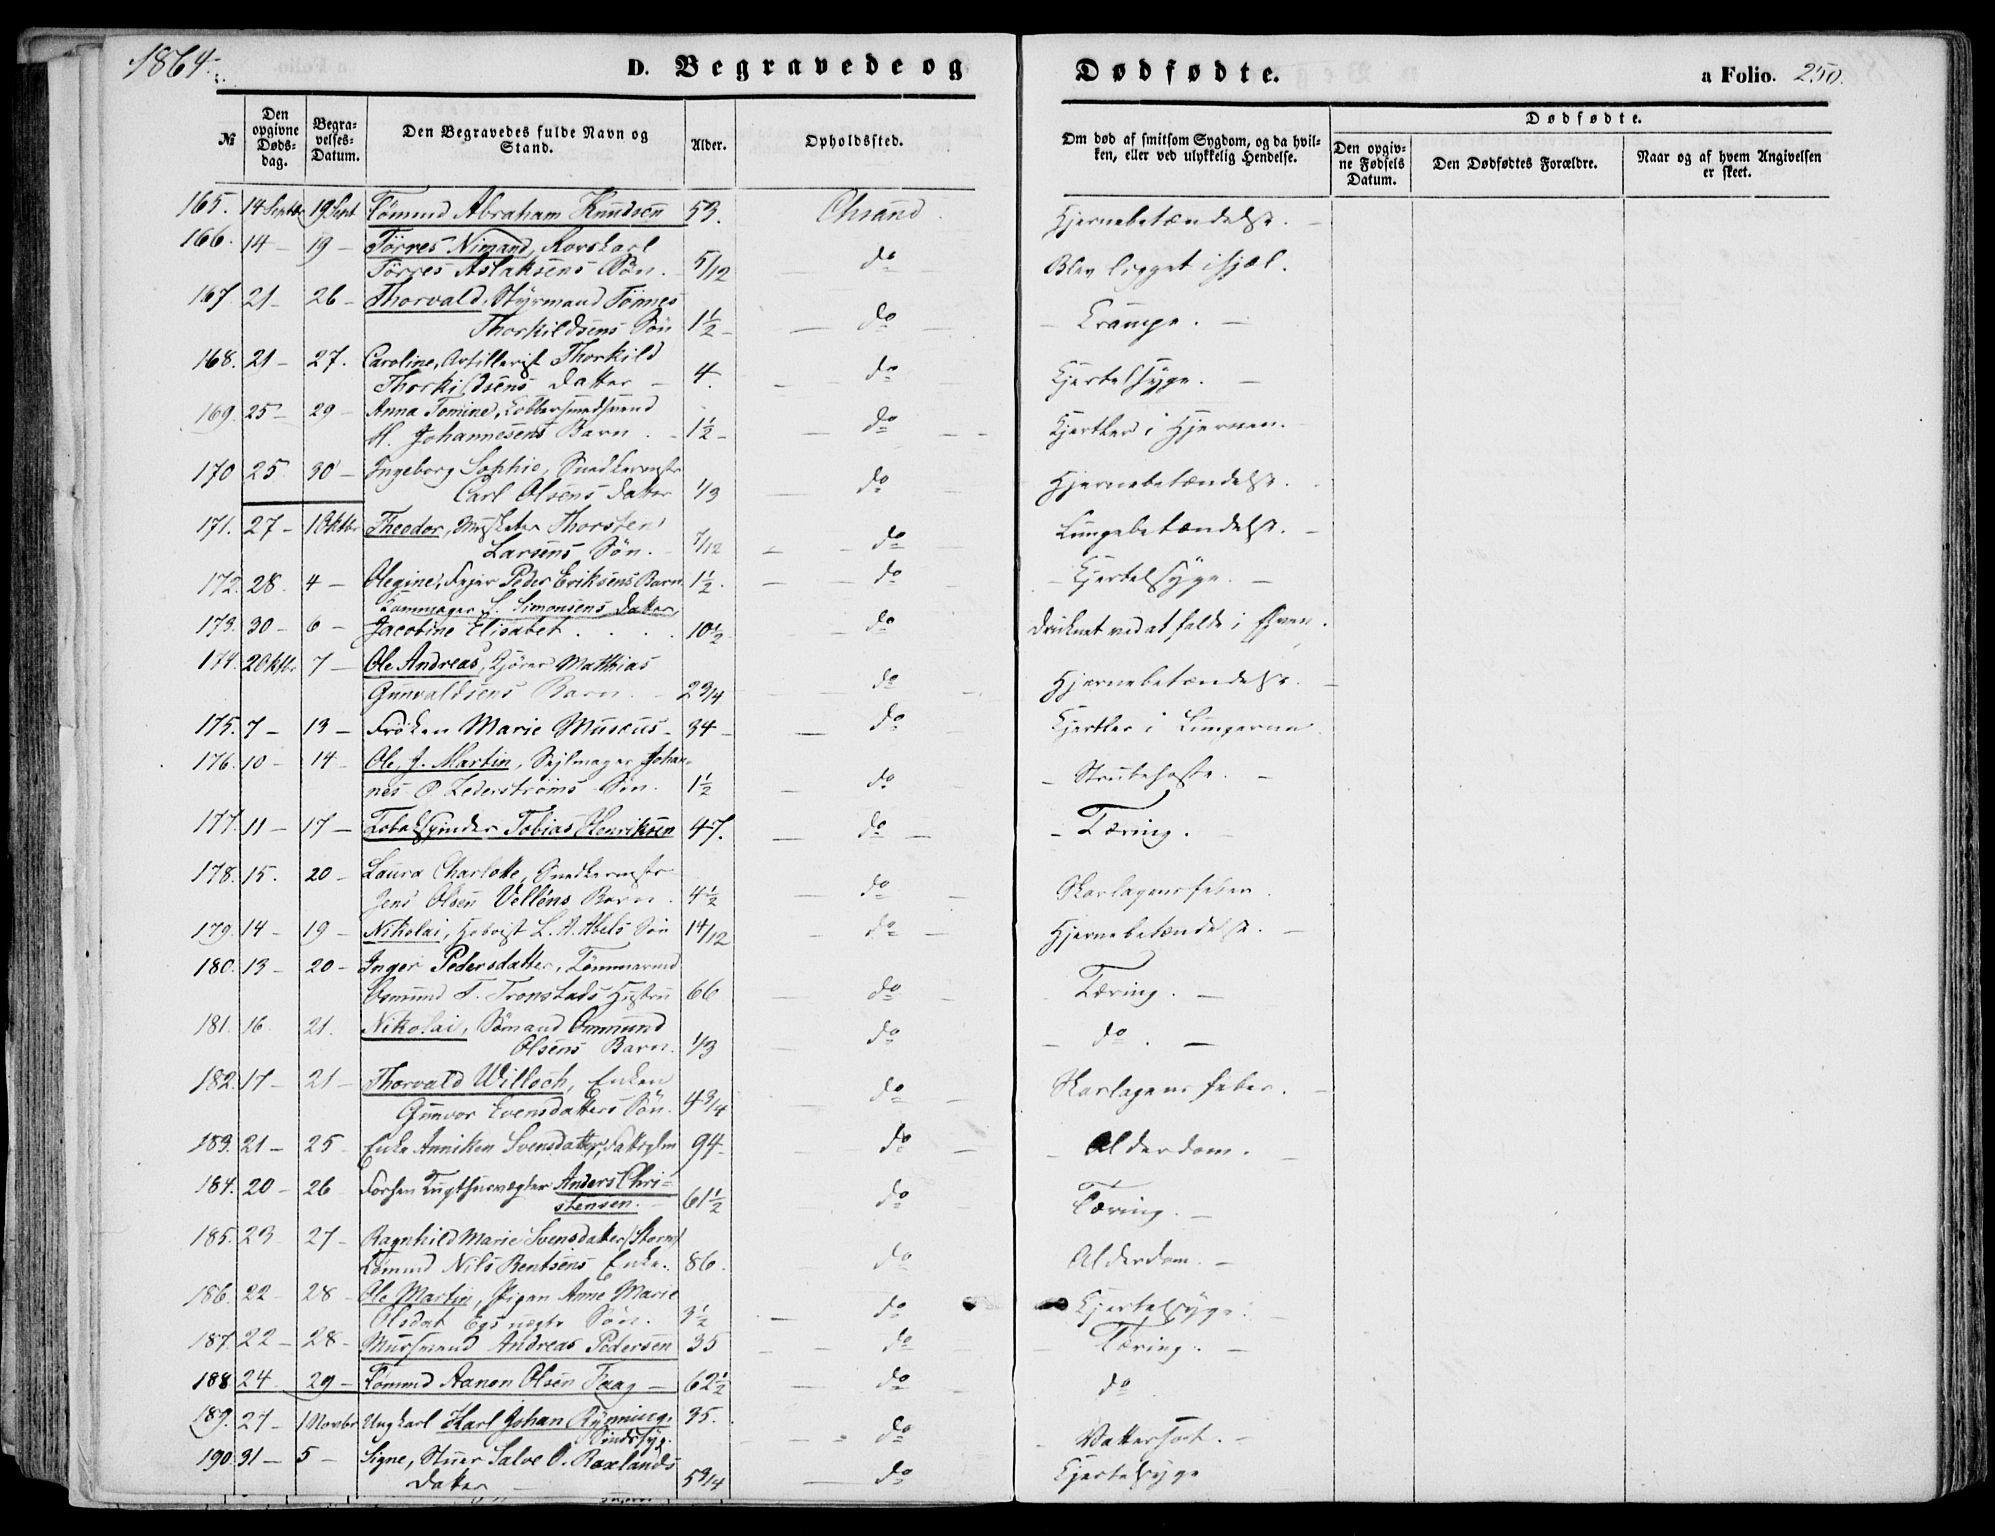 1864.
D. Begravede og Dødfødte. a Folio. 250.
№ Den opgivne Døds-dag. Begra-velses-Datum. Den Begravedes fulde Navn og Stand. Alder. Opholdssted. Om død af smitsom Sygdom, og da hvil-ken, eller ved ulykkelig Hendelse. Dødfødte. Den opgiv-ne Fødsels Datum. Den Dødfødtes Forældre. Naar og af hvem Angivelsen er skeet.
165. 14 Septbr 19 Sept Tømmd Abraham Knudsen 53. Chrsand. Hjernebetændelse. -
166. 14 - 19 - Tørres Nimand, Rorskarl
Tørres Aslaksens Søn. 5/12 do Blev ligget ihjel.
167. 21 - 26 - Thorvald, Styrmand Tønnes
Thorkildsens Søn 1½ - do - Krampe. -
168. 21 - 27. Caroline, Artillerist Thorkild
Thorkildsens Datter - 4. - do Kjertelsyge. -
169. 25 - 29 - Anna Tomine, Kobbersmedsvend
M. Johannesens Barn. - 1½ - do Kjertler i Hjernen.
170 25. 30 - Ingeborg Sophie, Snedkermstr
Carl Olsens Datter 1/3 - do - Hjernebetændelse.
171. 27 - 1 Oktbr Theodor, Musketer Thorsten
Larsens Søn. - 7/12 - do Lungebetændelse. -
172. 28. 4 - Olegine, Fejer Peder Eriksens Barn. 1½. - do - Kjertelsyge. -
Lommager S. Simonsens Datter,
173. 30 - 6 - Jacobine Elisabet. . . . 10½ - do Druknet ved at falde i Elven.
174. 2 Oktbr 7 - Ole Andreas, Kjører Matthias
Gunvaldsens Barn. - 2¾ - do - Hjernebetændelse. -
175. 7 - 13 - Frøken Marie Musæus - 34 - do - Kjertler i Lungerne.
176. 10 - 14 - Ole J. Martin, Sejlmager Johan-
nes O. Zederstrøms Søn. 1½ - do - Strubehoste. -
177. 11 - 17 - Tobakspinder Tobias Henriksen 47. - do - Tæring. -
178. 15. 20 - Laura Charlotte, Snedkermstr
Jens Olsen Velléns Barn. 4½ - do - Skarlagensfeber.
179. 14 - 19 - Nikolai, Hoboist L. A. Abels Søn 14/12 - do - Hjernebetændelse. -
180. 13 - 20 - Inger Pedersdatter, Tømmermd
Osmund T. Tronstads Hustru 66 - do - Tæring. -
181. 16. 21. Nikolai, Sømand Ommund
Olsens Barn. 1/3 - do - do. -
182. 17 - 21 - Thorvald Willoch, Enken
Gunvor Evensdatters Søn. 4¾ - do - Skarlagensfeber. -
183. 21 - 25 - Enke Anniken Svensdatter, Fattiglm 94 - do - Alderdom. -
184. 20 - 26 Forhen Tugthusvægter Anders Chri-
stensen. - 61½ - do - Tæring. -
185. 23 27 - Ragnhild Marie Svensdatter (Storm)
Tømmd Nils Bentsens Enke. 86. do Alderdom. -
186. 22 - 28 - Ole Martin, Pigen Anne Marie
Olsdat Egs uægte Søn. 3½ - do Kjertelsyge. -
187. 22 - 28 - Murermd Andreas Pedersen 35 - do Tæring. -
188 24 29 - Tømmd Aanon Olsen Faag - 62½ - do - do
189. 27 - 1 Novbr Ungkarl Karl Johan Rynning. 35. - do - Vattersot. -
Sindssyg.
190. 31 - 5 - Signe, Stuer Salve O. Roxlands
Datter - 5¾ - do Kjertelsyge